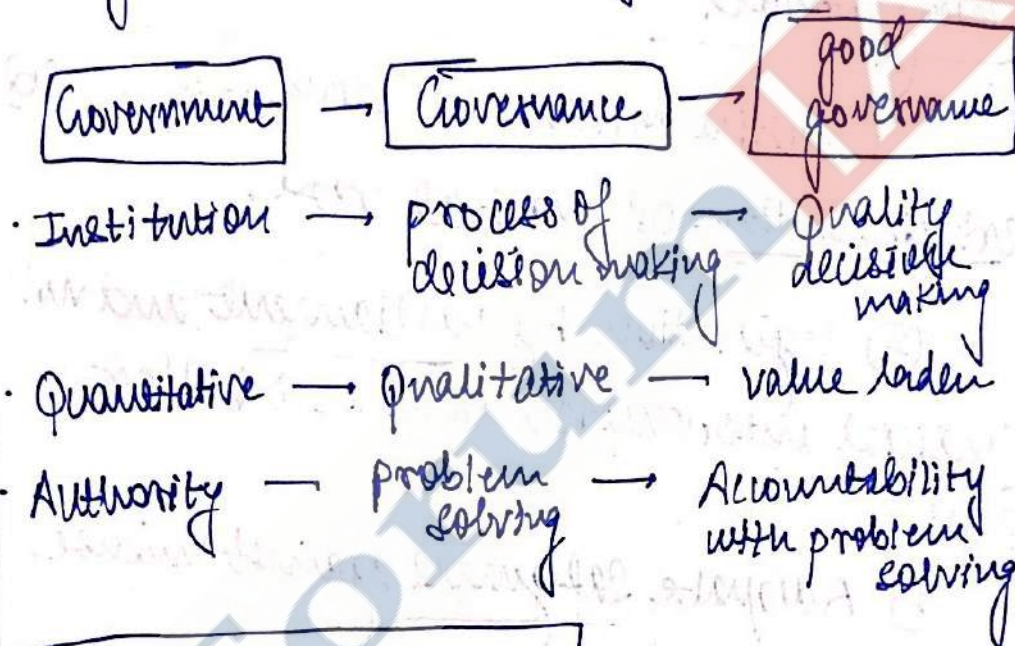 Government → Governance → good governance
· Institution → process of decision making → Quality decision making
· Quantitative → Qualitative — value laden
· Authority — problem solving → Accountability with problem solving
Forum